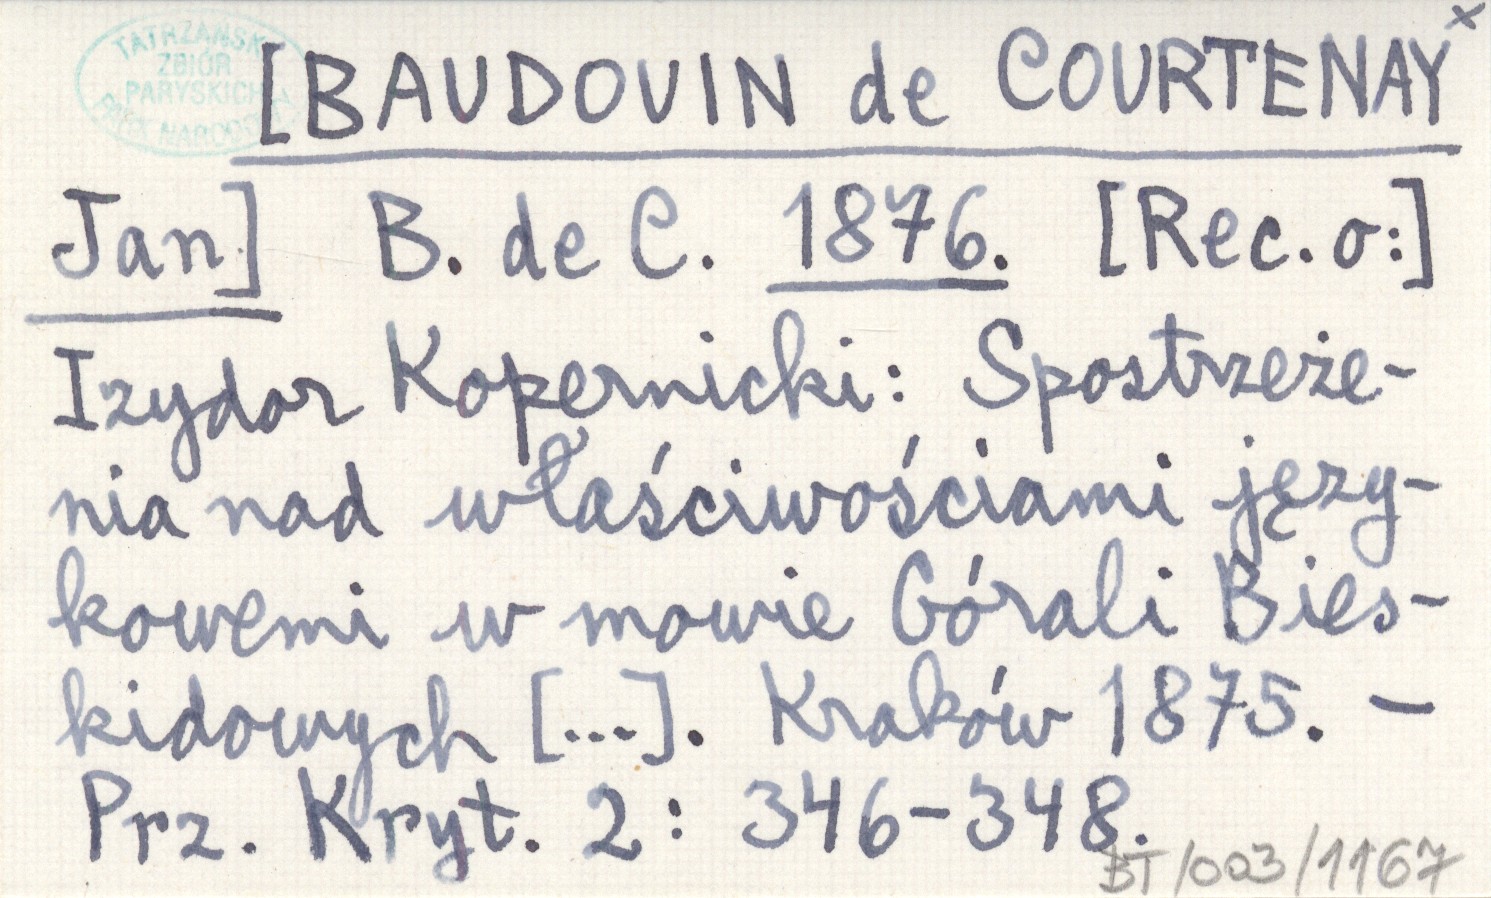 TATRZAŃSKI
ZBIÓR
PARYSKICH
[BAUDOUIN de COURTENAY x
Jan] B. de C. 1876. [Rec. o:]
Izydor Kopernicki: Spostrzeże-
nia nad właściwościami języ-
kowemi w mowie Górali Bies-
kidowych [...]. Kraków 1875. –
Prz. Kryt. 2: 346-348.
BT/003/1167